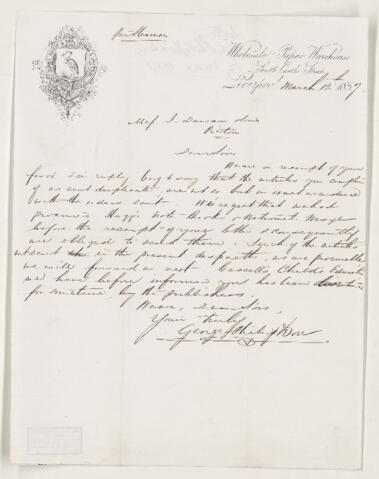 Per Herman
Wholesale Paper Warehouse
South Castle Street
Liverpool March 12th 1857.
Mess J. Dawson & Sons
Dear Sirs
We are in receipt of your
favor & in reply beg to say that the articles you complain
of as sent duplicate, are not so but in exact accordance
with the orders sent. We regret that we had
procured Note Book & National Mags
before the receipt of your letter & consequently
are obliged to send them. Such of the articles
not sent in the present despatch, as are procurable
we will forward in next. Cassells Child's Educator
we have before informed you has been
for sometime by the publishers.
We are, Dear Sirs,
Yours truly
George Philip & Son